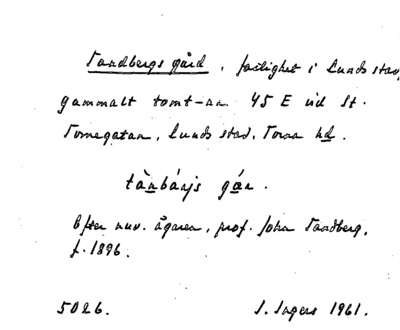 Sandbergs gård, fastighet i Lunds stad,
gammalt tomt-nr 45 E vid St.
Tomegatan, Lunds stad, Torna hd.
gár.
Efter nuv. ägaren, prof. John Sandberg,
f. 1896.
5026. S. Ingers 1961.